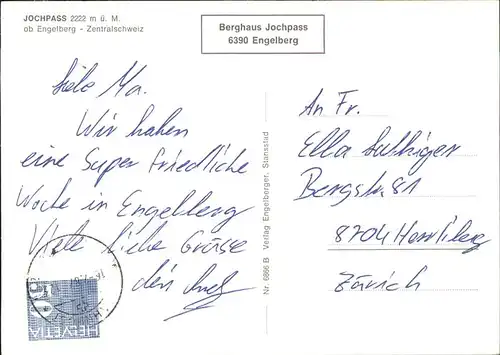 JOCHPASS 2222 m ü. M.
ob Engelberg - Zentralschweiz
Berghaus Jochpass
6390 Engelberg
Liebe Ma.
Wir haben
eine Super Friedliche
Woche in Engelberg
Viele liebe Grüsse
dein
An Fr.
Ella
Bergstr. 81
8704 Herrliberg
Zürich
Nr. 6886 B Verlag Engelberger, Stansstad
HELVETIA
50